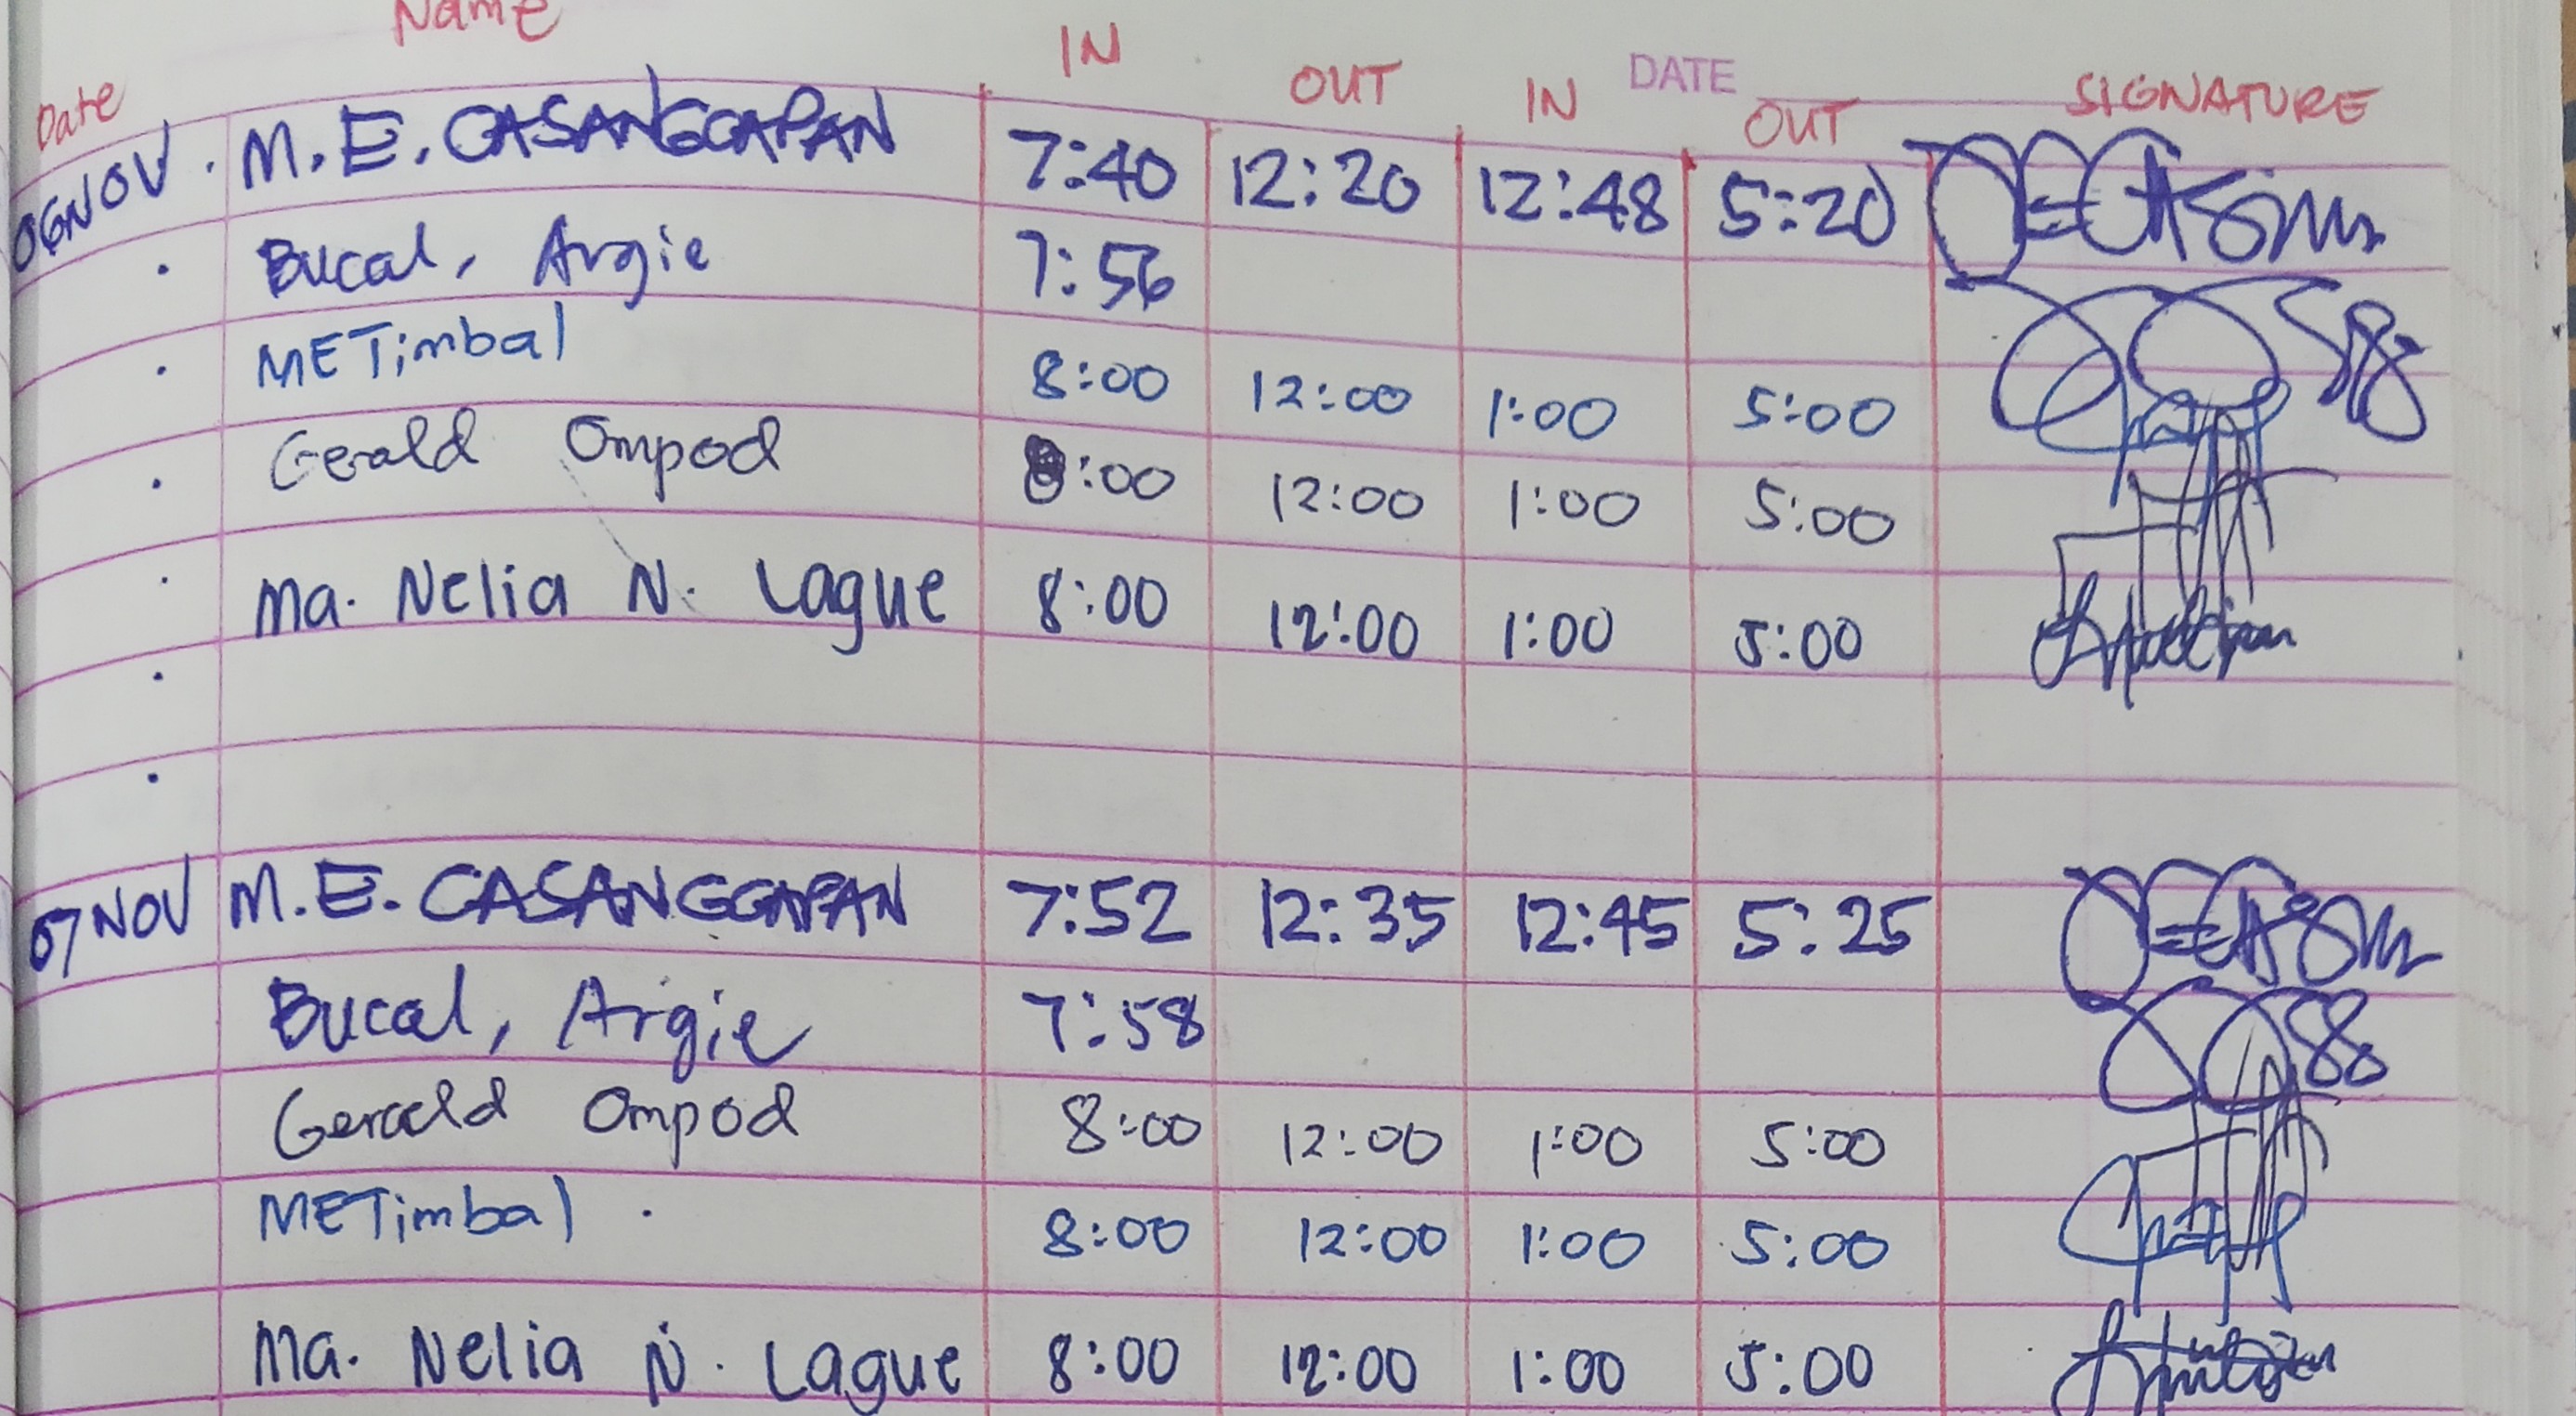 Name
Date IN OUT IN DATE OUT SIGNATURE
06 NOV . M. E. CASANGGAPAN 7:40 12:20 12:48 5:20
. Bucal, Argie 7:56
. METimbal 8:00 12:00 1:00 5:00
. Gerald Ompod 8:00 12:00 1:00 5:00
. Ma. Nelia N. Lague 8:00 12:00 1:00 5:00
07 NOV M. E. CASANGGAPAN 7:52 12:35 12:45 5:25
Bucal, Argie 7:58
Gerald Ompod 8:00 12:00 1:00 5:00
METimbal 8:00 12:00 1:00 5:00
Ma. Nelia N. Lague 8:00 12:00 1:00 5:00